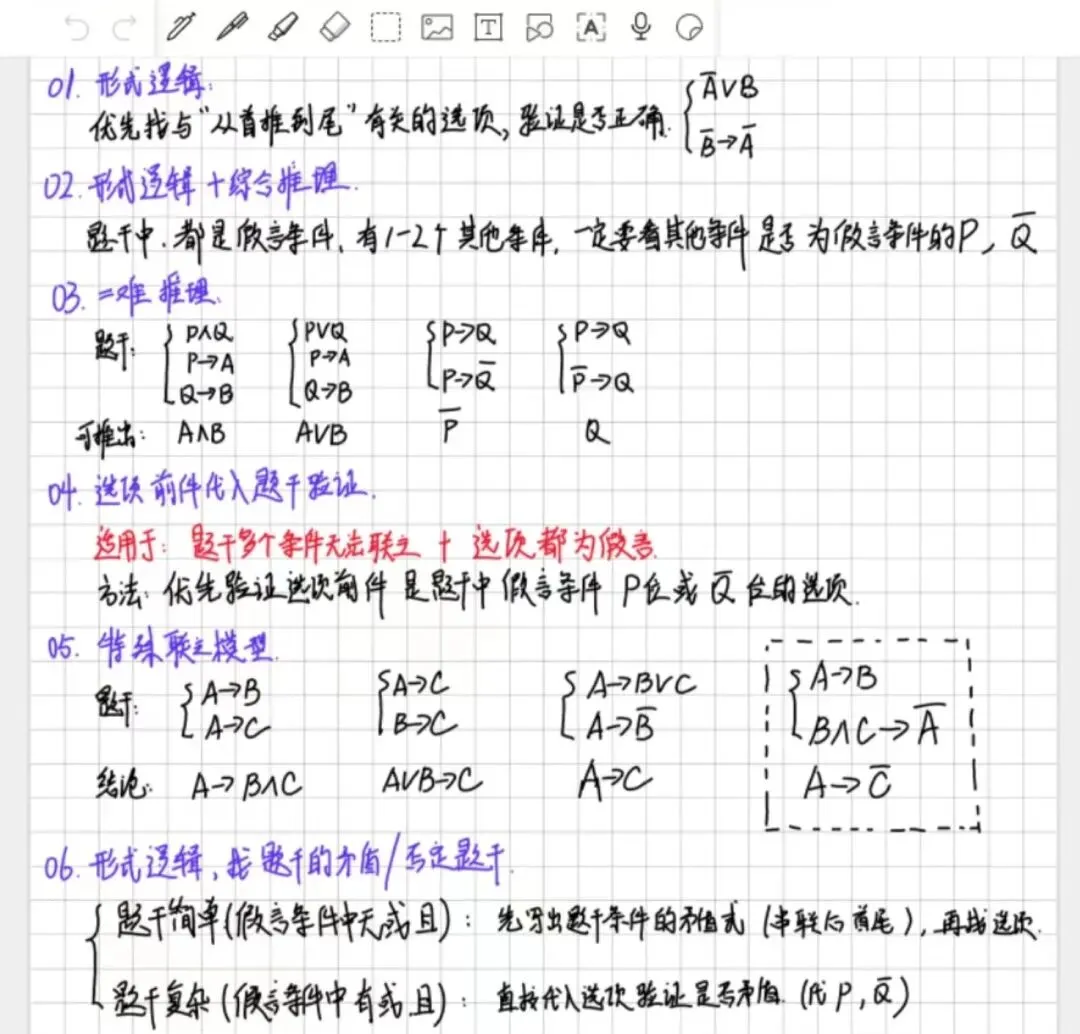 01. 形式逻辑:
优先找与"从首推到尾"有关的选项,验证是否正确. { A̅∨B
B̅→A̅
02. 形式逻辑+综合推理.
题干中.都是假言条件,有1-2个其他条件,一定要看其他条件是否为假言条件的P, Q̅
03. 二难推理.
题干: { P∧Q { P∨Q { P→Q { P→Q
P→A P→A P→Q̅ P̅→Q
Q→B Q→B
可推出: A∧B A∨B P̅ Q
04. 选项前件代入题干验证.
适用于: 题干多个条件无法联立 + 选项都为假言.
方法: 优先验证选项前件是题干中假言条件 P位或 Q̅ 位的选项.
05. 特殊联立模型.
题干: { A→B { A→C { A→B∨C { A→B
A→C B→C A→B̅ B∧C→A̅
结论: A→B∧C A∨B→C A→C A→C̅
06. 形式逻辑,找题干的矛盾/否定题干.
{ 题干简单(假言条件中无或且): 先写出题干条件的矛盾式 (串联后首尾), 再找选项.
题干复杂(假言条件中有或.且): 直接代入选项验证是否矛盾. (代 P, Q̅)